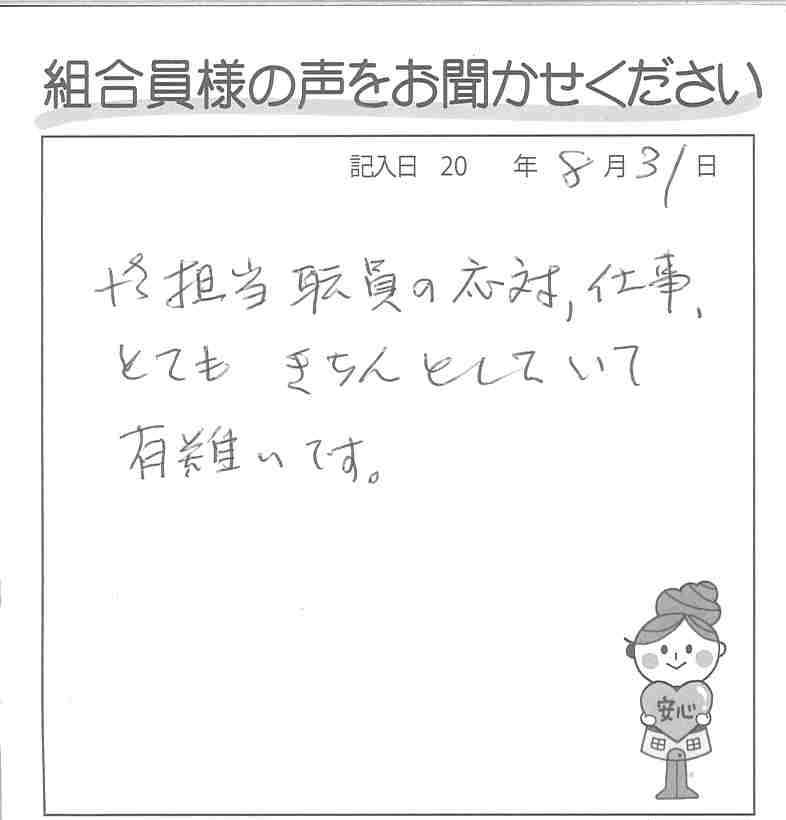 組合員様の声をお聞かせください
記入日 20 年 8月31日
担当職員の応対,仕事、
とても きちんとしていて
有難いです。
安心